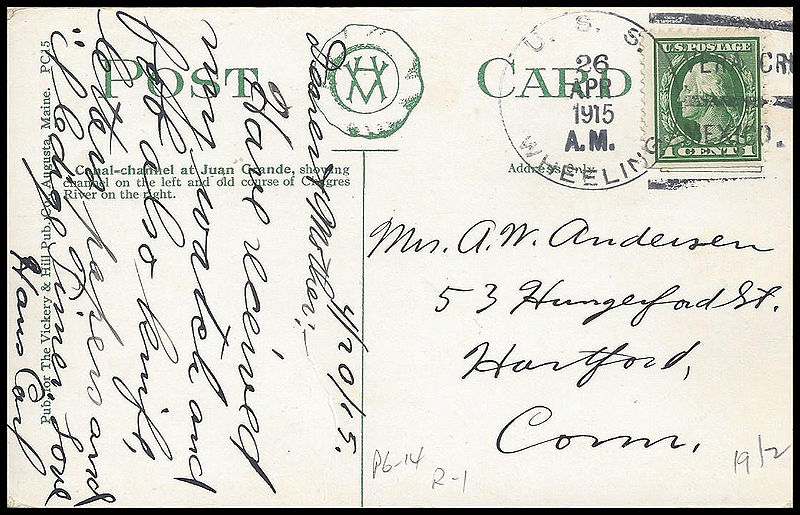 POST CARD
Canal-channel at Juan Grande, showing
channel on the left and old course of Chagres
River on the right.
Address Only
Pub. for The Vickery & Hill Pub. Co. Augusta, Maine. PC15
U. S. S. WHEELING
26
APR
1915
A.M.
CRU
MEXICO.
U.S. POSTAGE
1 CENT 1
4/20/15.
Dearest Mother:—
Have received
my watch and
fob also knife,
letter papers and
Love
Hans Carl
Mrs. A. W. Andersen
53 Hungerford St.
Hartford,
Conn.
P6-14
R-1
19/2